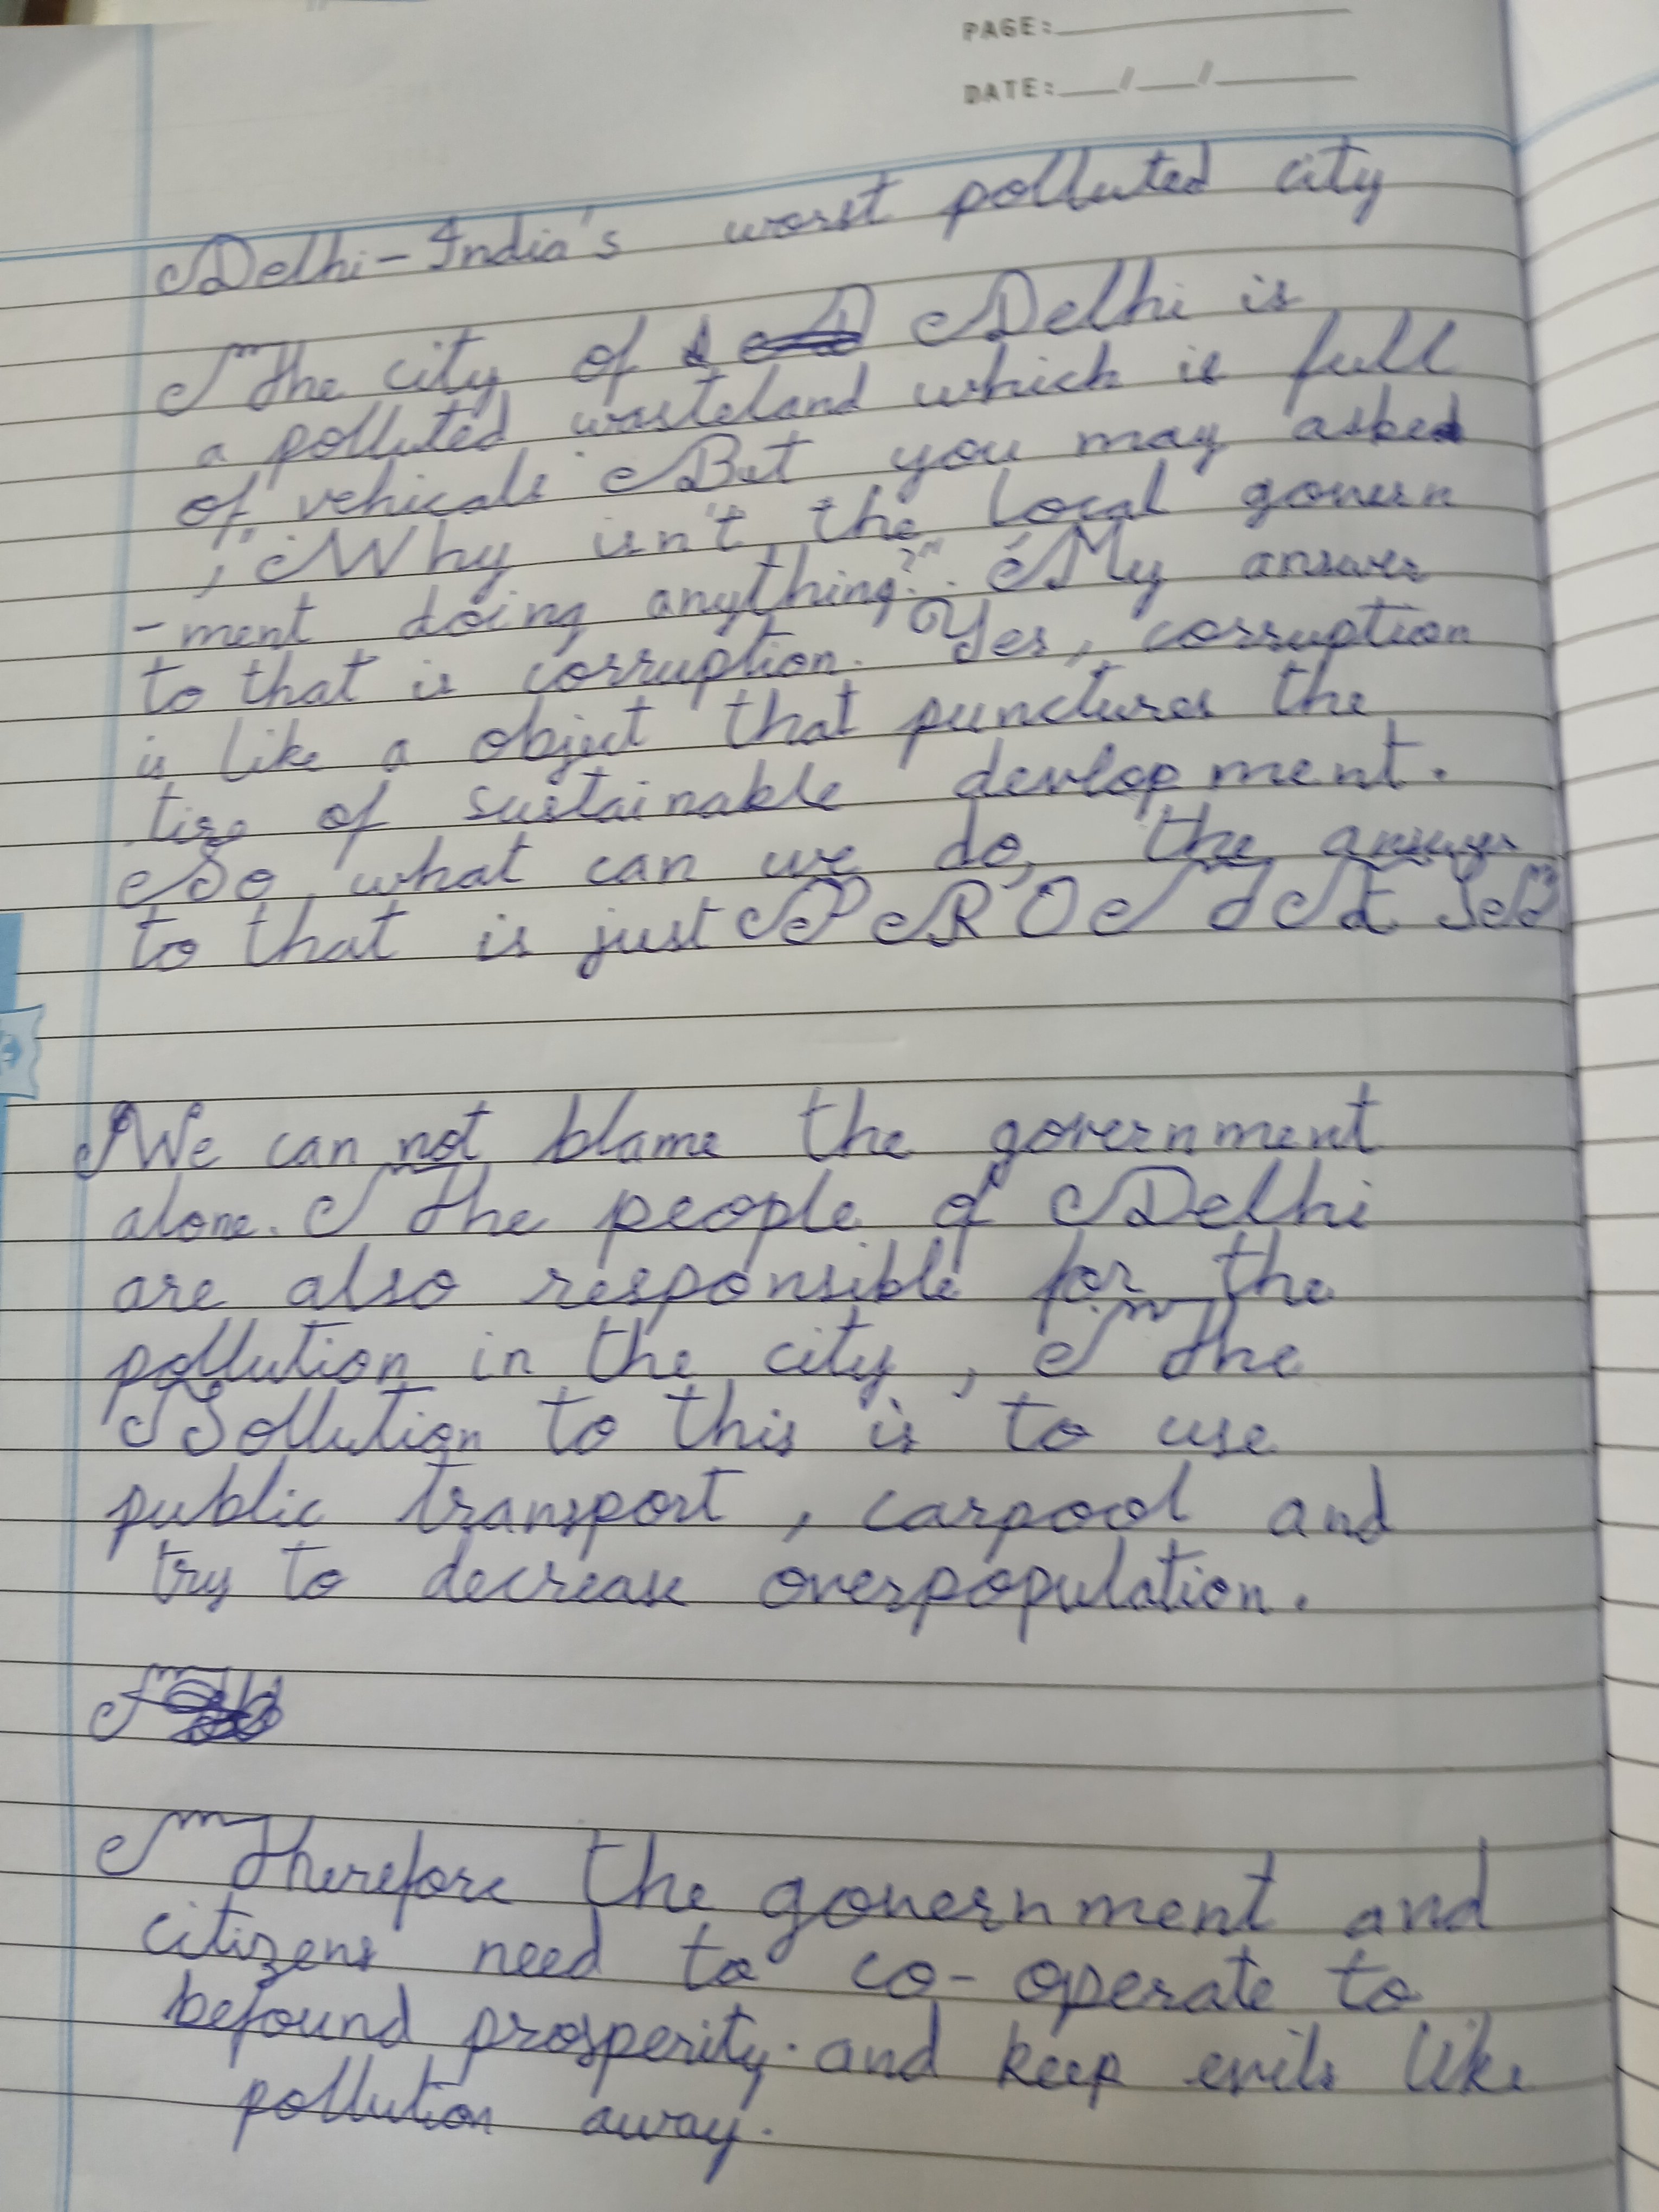 PAGE:
DATE: / /
Delhi-India's worst polluted city
The city of Delhi is
a polluted wasteland which is full
of vehicals But you may asked
, "Why isn't the local govern
-ment doing anything?". My answer
to that is corruption. Yes, corruption
is like a object that punctures the
tire of sustainable devlopment.
So what can we do, the answer
to that is just PROTEST
We can not blame the government
alone. The people of Delhi
are also responsible for the
pollution in the city, The
Sollution to this is to use
public transport, carpool and
try to decrease overpopulation.
Therefore the government and
citizens need to co-operate to
befound prosperity. and keep evils like
pollution away.